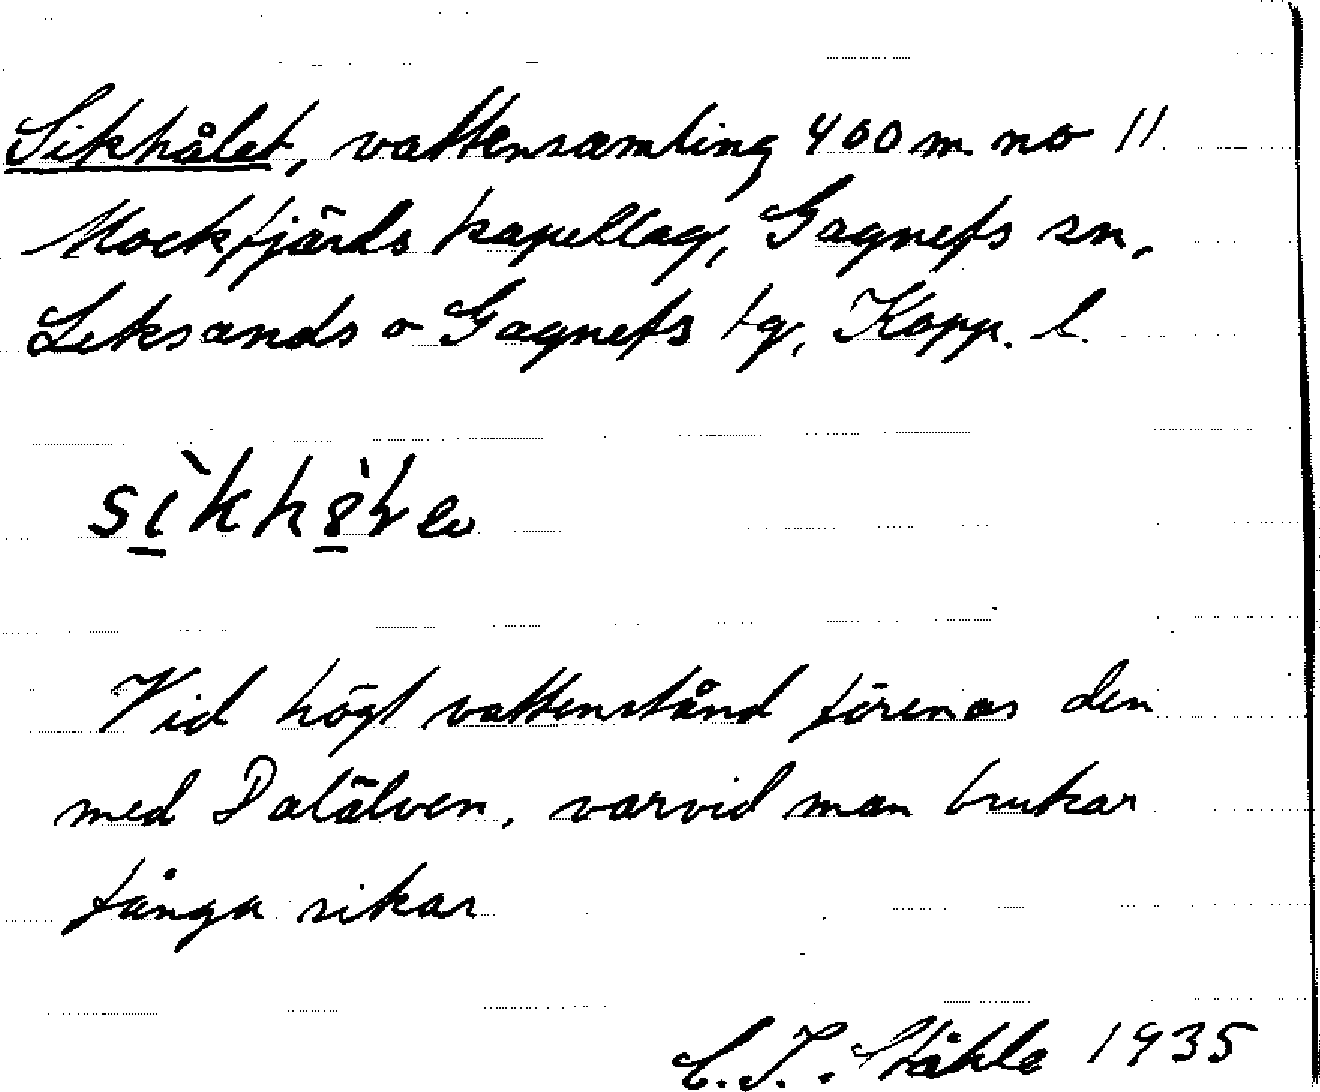 Sikhålet, vattensamling 400 m no 11
Mockfjärds kapellag, Gagnefs sn.
Leksands o Gagnefs tg, Kopp. l.
Vid högt vattenstånd förenas den
med Dalälven, varvid man brukar
fånga sikar
C.I. Ståhle 1935